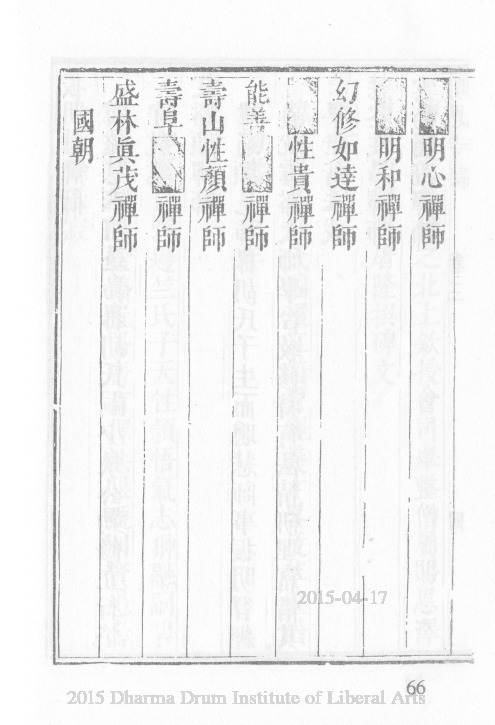 明心禪師
明和禪師
幻修如達禪師
性貴禪師
能善禪師
壽山性顏禪師
壽阜禪師
盛林眞茂禪師
國朝
2015-04-17
66
2015 Dharma Drum Institute of Liberal Arts